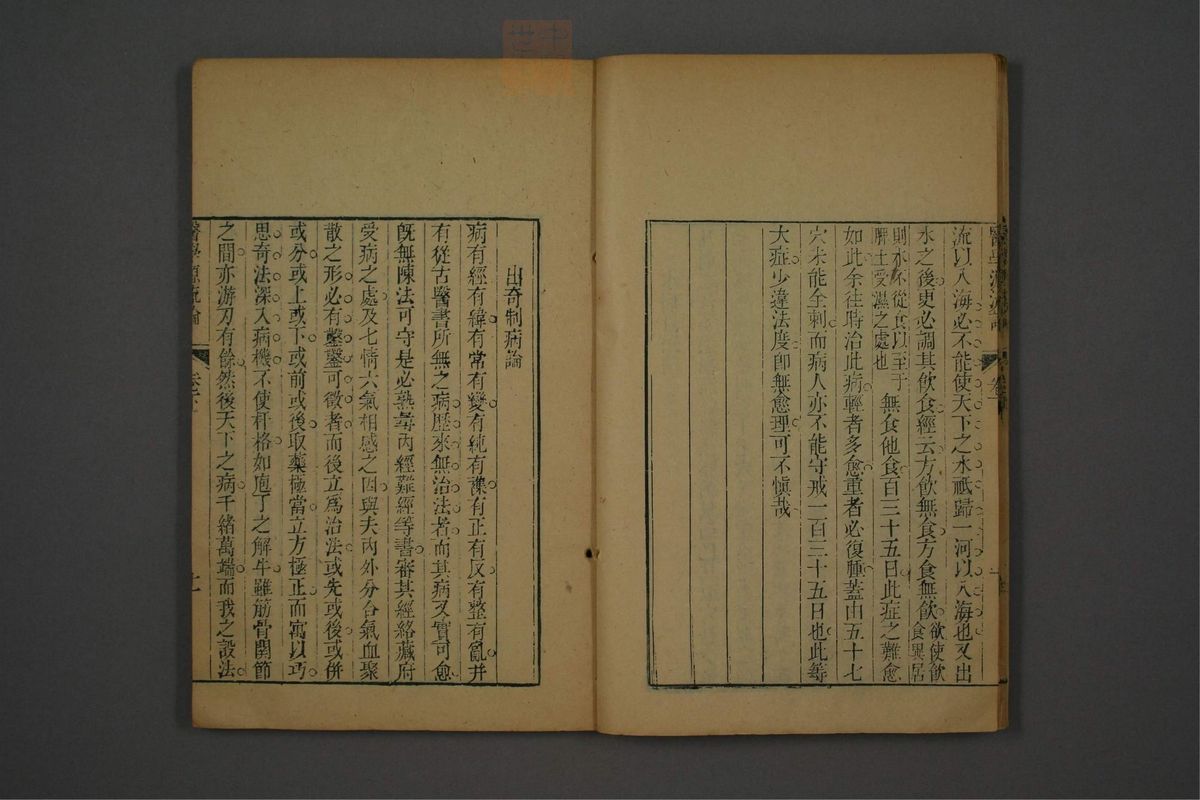 流以入海必不能使天下之水祗歸一河以入海也又出
水之後更必調其飲食經云方飲無食方食無飲欲使飲食異居
則水不從食以至于脾土受濕之處也無食他食百三十五日此症之難愈
如此余往時治此病輕者多愈重者必復腫蓋由五十七
穴未能全刺而病人亦不能守戒一百三十五日也此等
大症少違法度卽無愈理可不愼哉
出奇制病論
病有經有緯有常有變有純有雜有正有反有整有亂并
有從古醫書所無之病歷來無治法者而其病又實可愈
旣無陳法可守是必熟尋內經難經等書審其經絡藏府
受病之處及七情六氣相感之因與夫內外分合氣血聚
散之形必有鑿鑿可徵者而後立爲治法或先或後或併
或分或上或下或前或後取藥極當立方極正而寓以巧
思奇法深入病機不使扞格如庖丁之解牛雖筋骨關節
之間亦游刃有餘然後天下之病千緒萬端而我之設法
醫學源流論